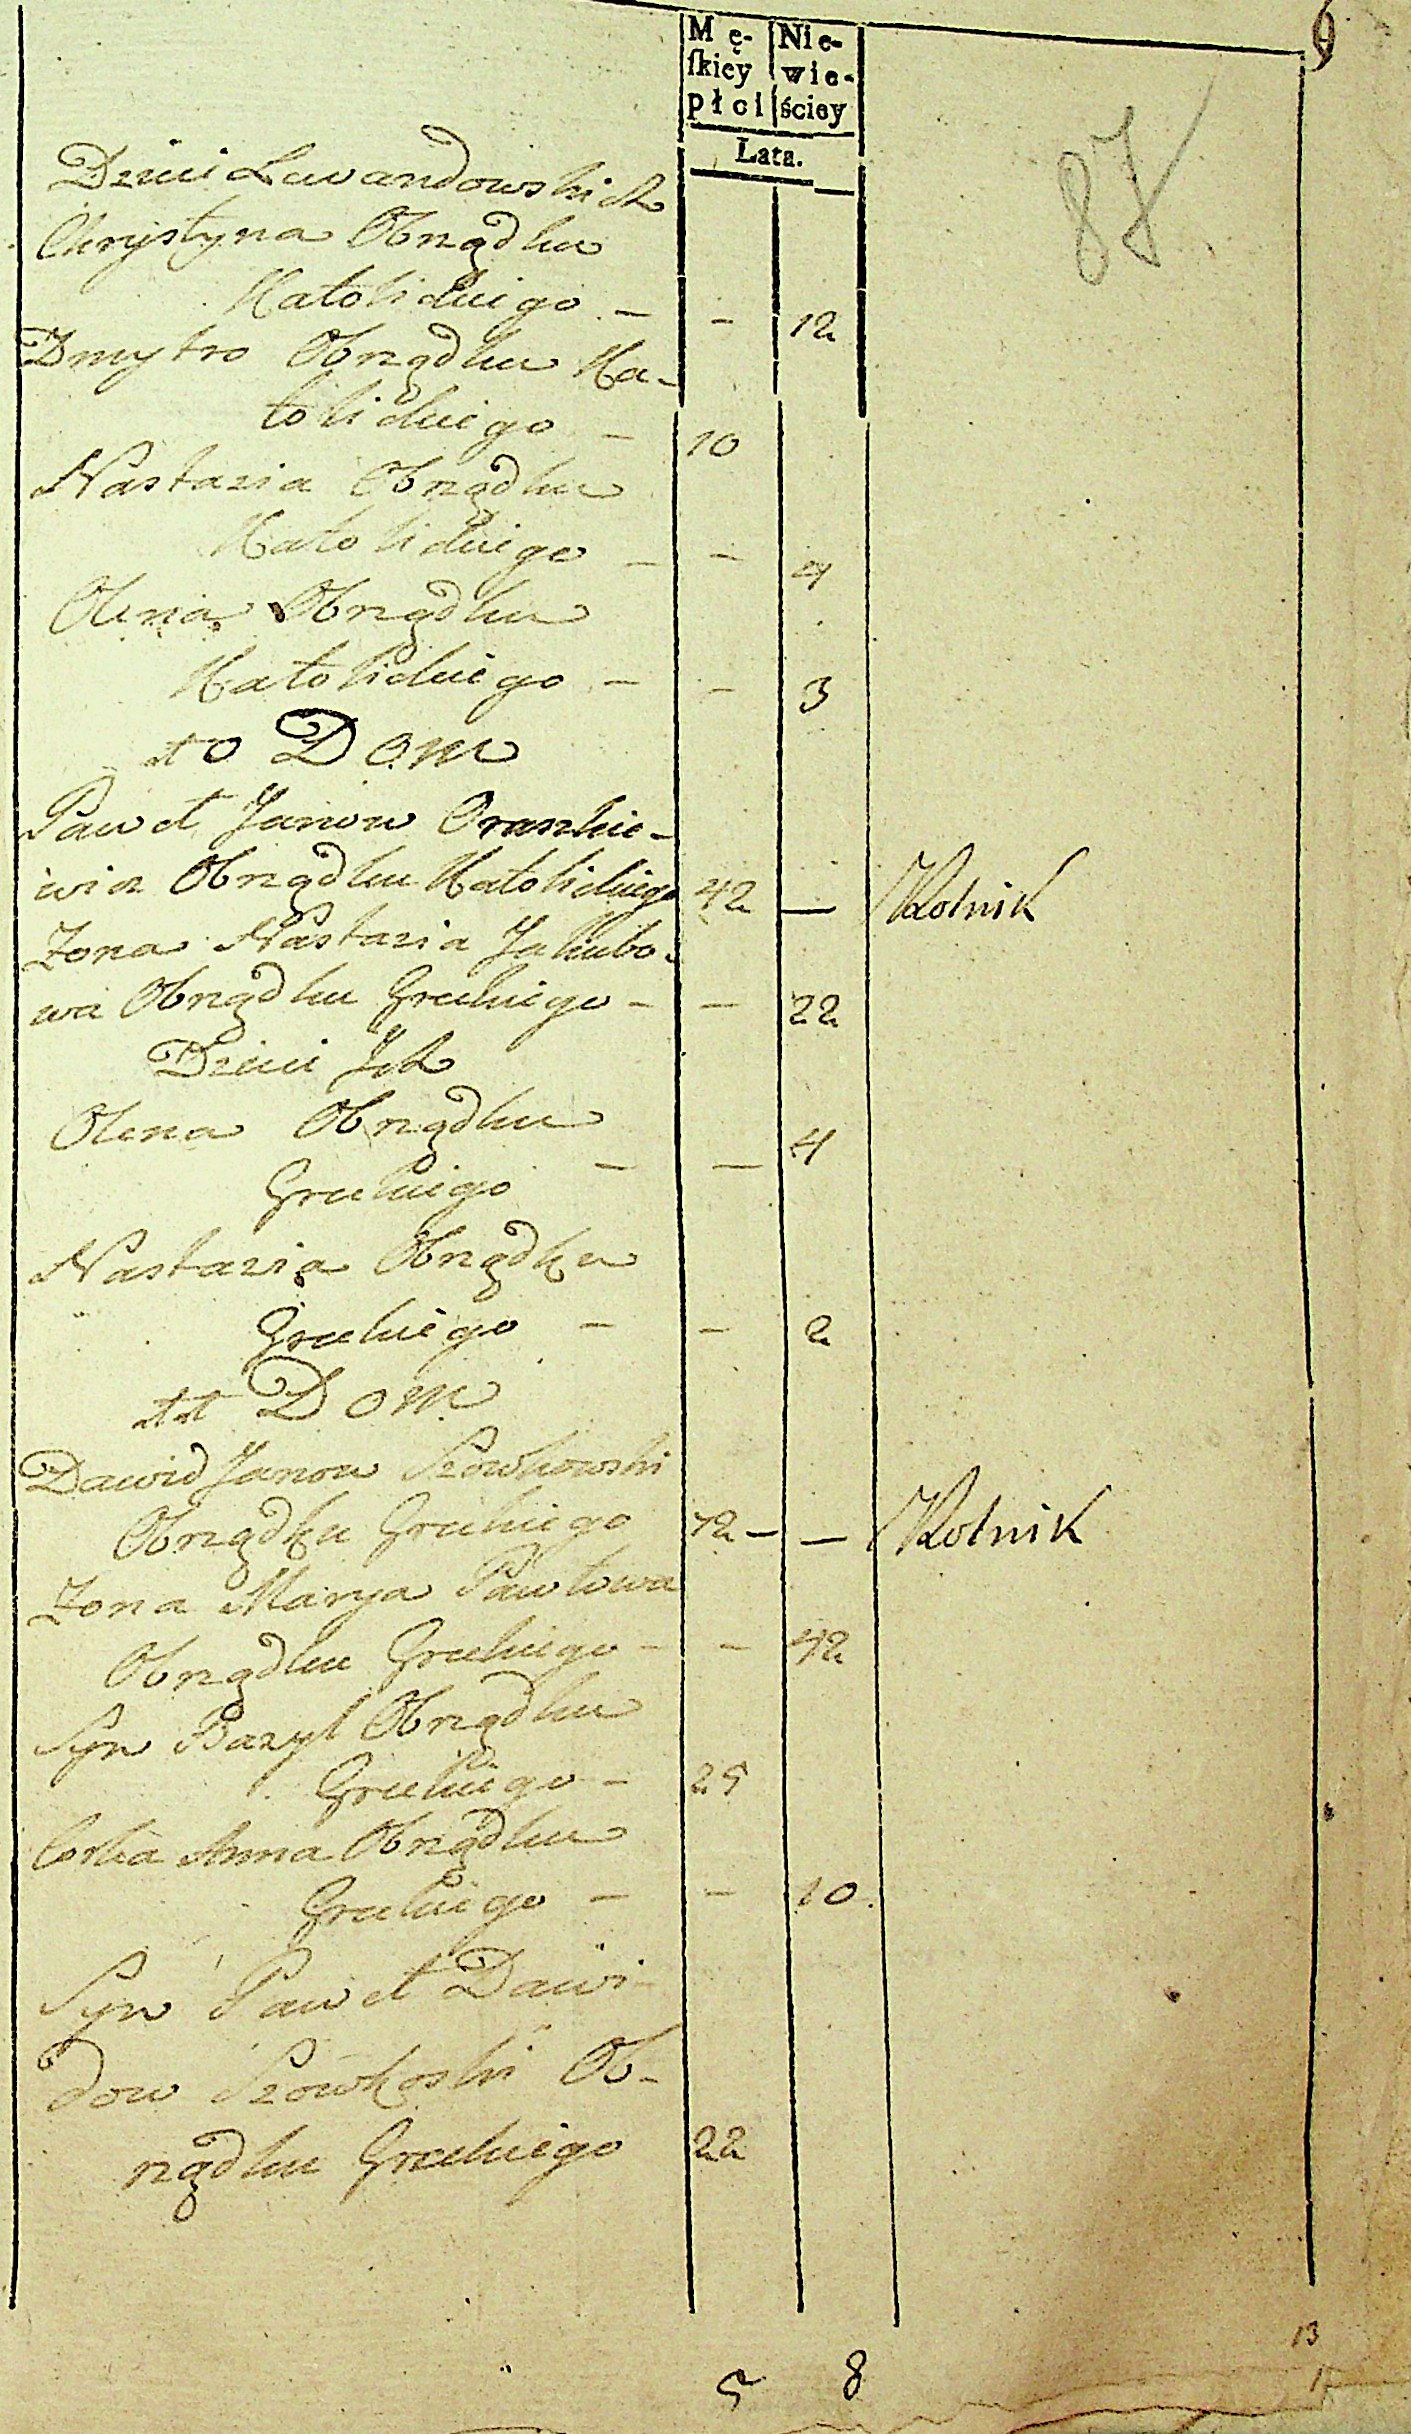 9
Mę- Nie-
ſkiey wie-
płci ściey
Lata.
87
Dzieci Lewandowskich
Chrystyna Obrządku
Katolickiego – – 12
Dmytro Obrządku Ka-
tolickiego – 10
Nastazia Obrządku
Katolickiego – – 4
Olena Obrządku
Katolickiego – – 3
10 Dom
Paweł Janow
wicz Obrządku Katolickiego 42 — Rolnik
Zona Nastazia Jakubo-
wa Obrządku Greckiego – – 22
Dzieci Ich
Olena Obrządku
Greckiego – — 4
Nastazia Obrządku
Greckiego – – 2
11 Dom
Dawid Janow
Obrządku Greckiego 72 – — Rolnik
Zona Marya Pawłowa
Obrządku Greckiego – – 42
Syn Bazyl Obrządku
Greckiego – 25
Corka Anna Obrządku
Greckiego – – 10
Syn Paweł Dawi-
dow Ob-
rządku Greckiego 22
13
5 8